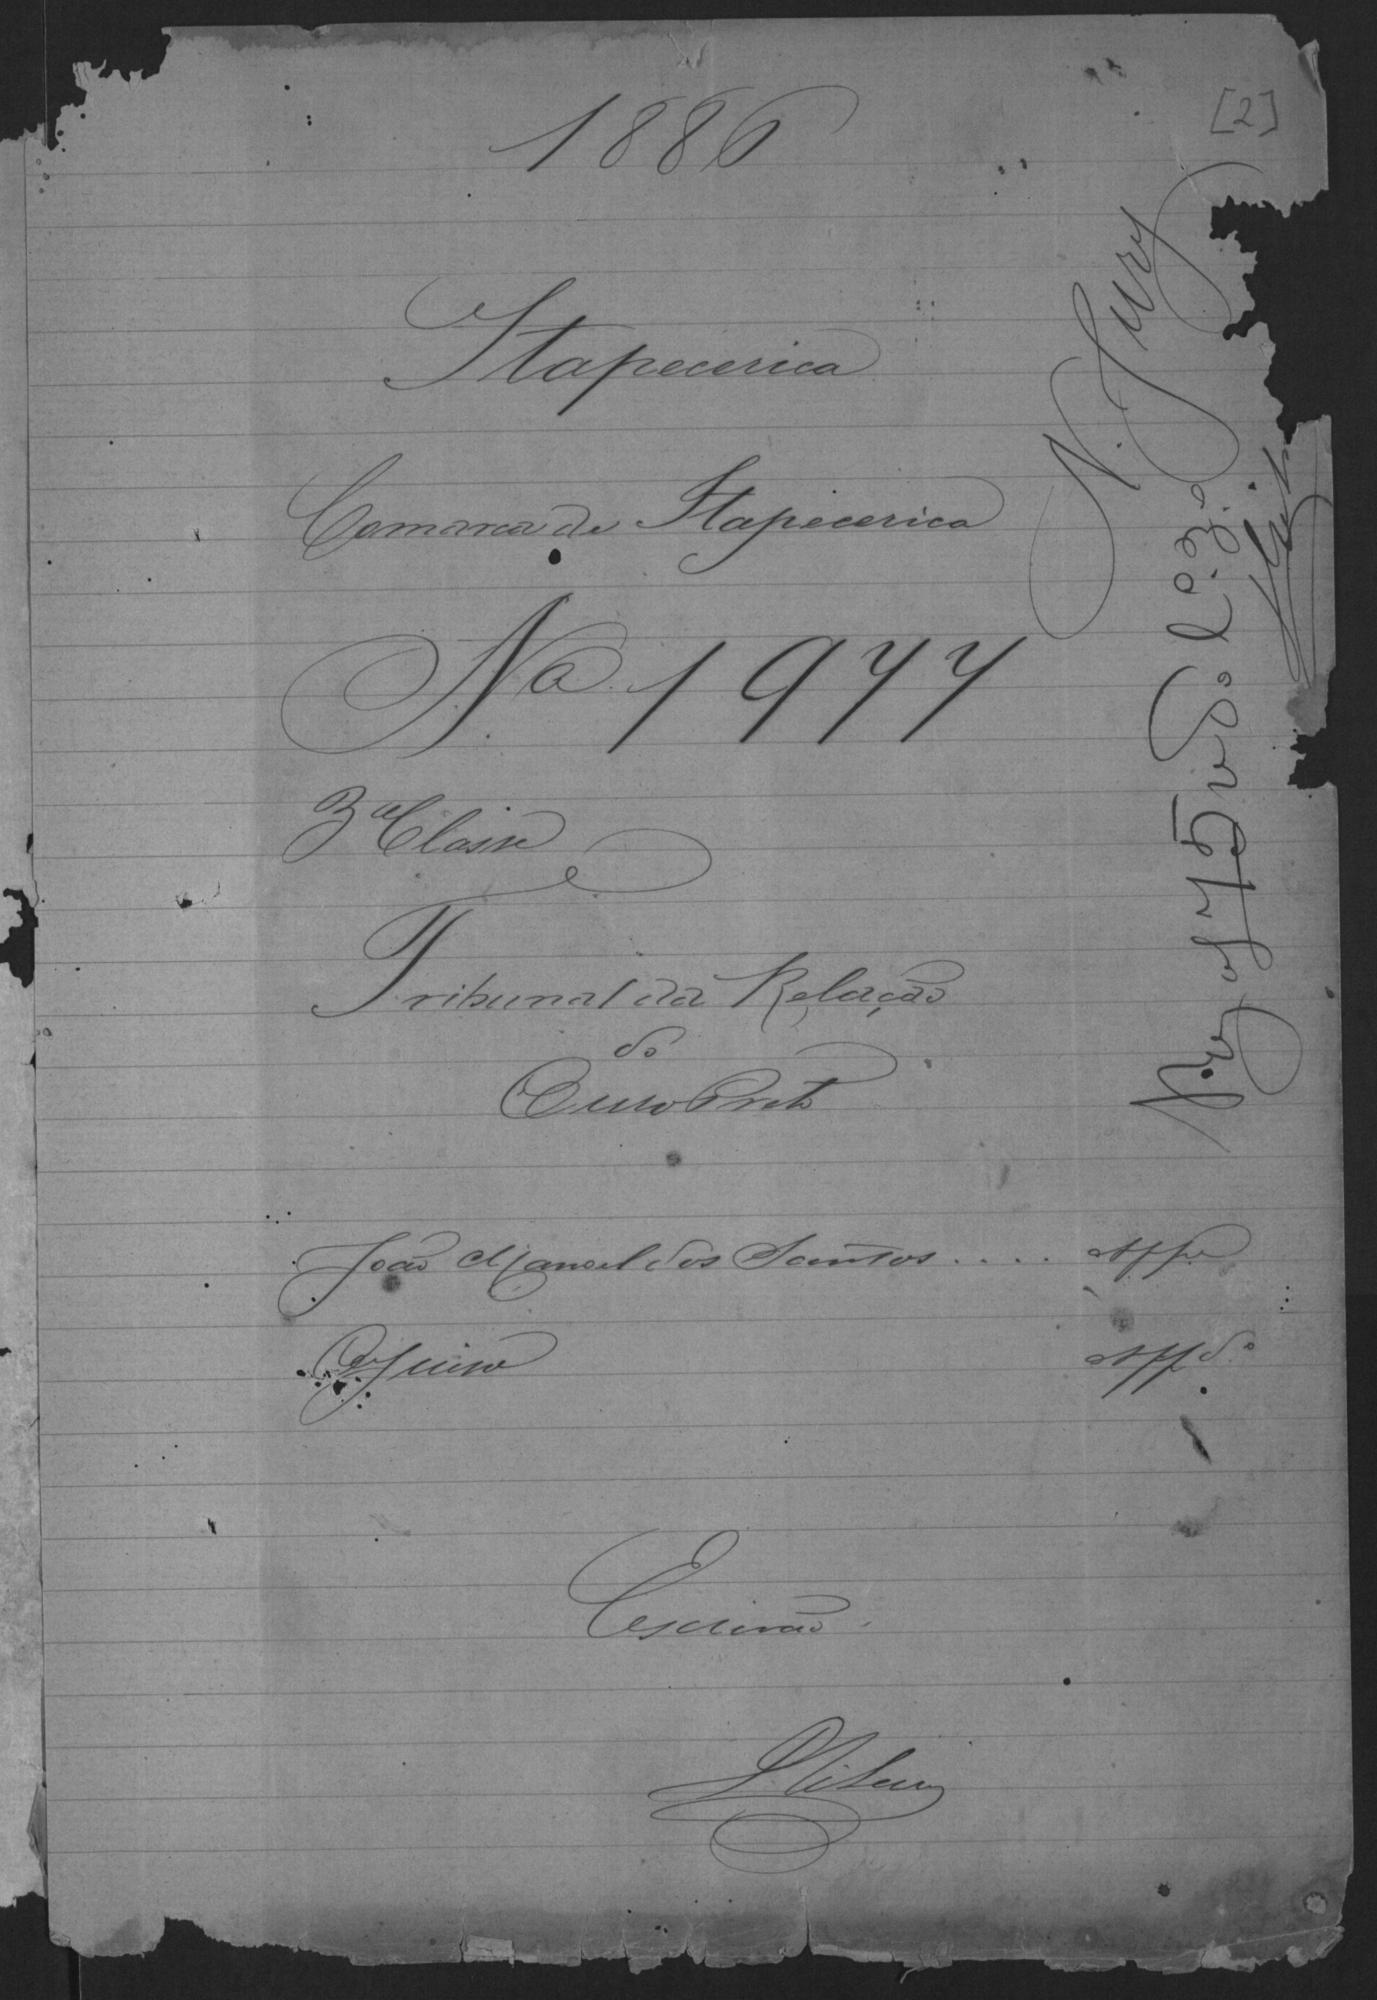 [2]
1886
Itapecerica
Comarca de Itapecerica
Na 1977
3ª Classe
Tribunal da Relação
do
Ouro Preto
João Manoel dos Santos .... Appe
O Juiso Appdo.
Escrivão
N. Jury